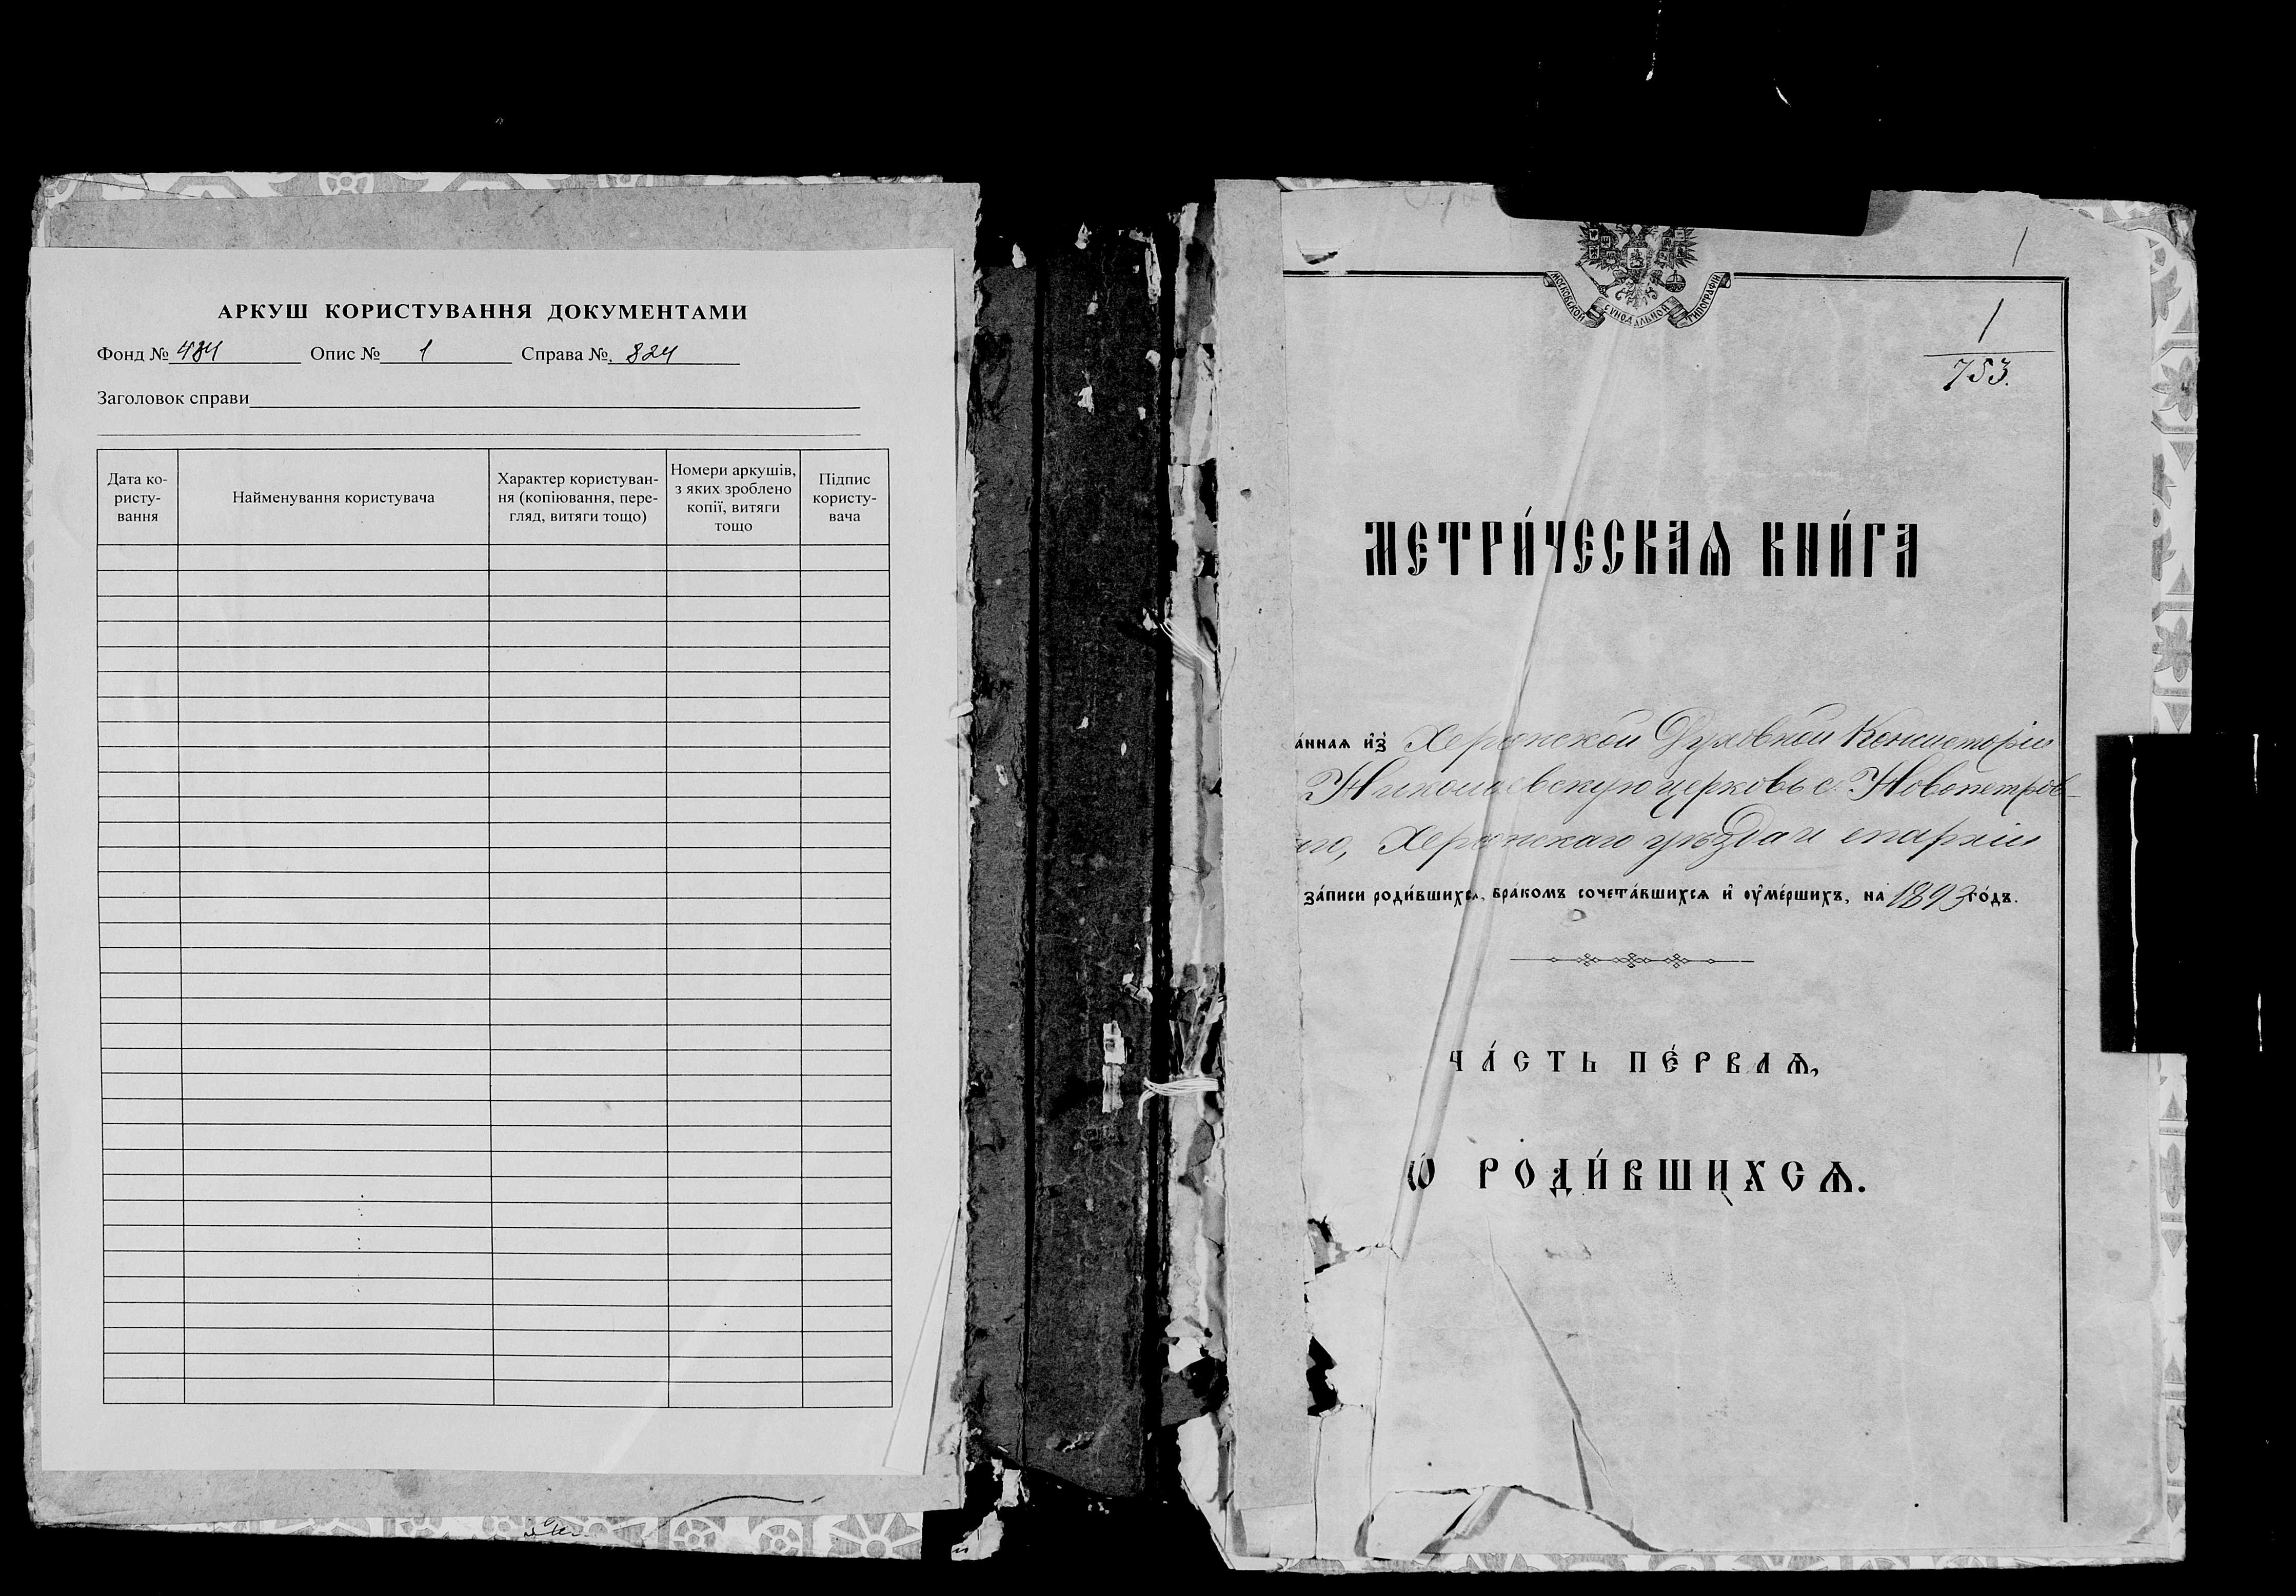 АРКУШ КОРИСТУВАННЯ ДОКУМЕНТАМИ
Фонд № 484 Опис № 1 Справа №. 824
Заголовок справи
Дата ко-
ристу-
вання
Найменування користувача
Характер користуван-
ня (копіювання, пере-
гляд, витяги тощо)
Номери аркушів,
з яких зроблено
копії, витяги
тощо
Підпис
користу-
вача
1
МОСКОВСКОЙ СѴНОДАЛЬНОЙ ТИПОГРАФІИ
1
753.
МЕТРИ́ЧЕСКАѦ КНИ́ГА
а́ннаѧ и҆з̾ Херсонской Духовной Консисторіи
Николаевскую церковь с. Новопетров-
го, Херсонскаго уѣзда и епархіи
за́писи роди́вшихсѧ, бра́комъ сочета́вшихсѧ и҆ ᲂу҆ме́ршихъ, на 1893 го́дъ.
ЧА́СТЬ ПЕ́РВАѦ,
Ѡ҆ РОДИ́ВШИХСѦ.